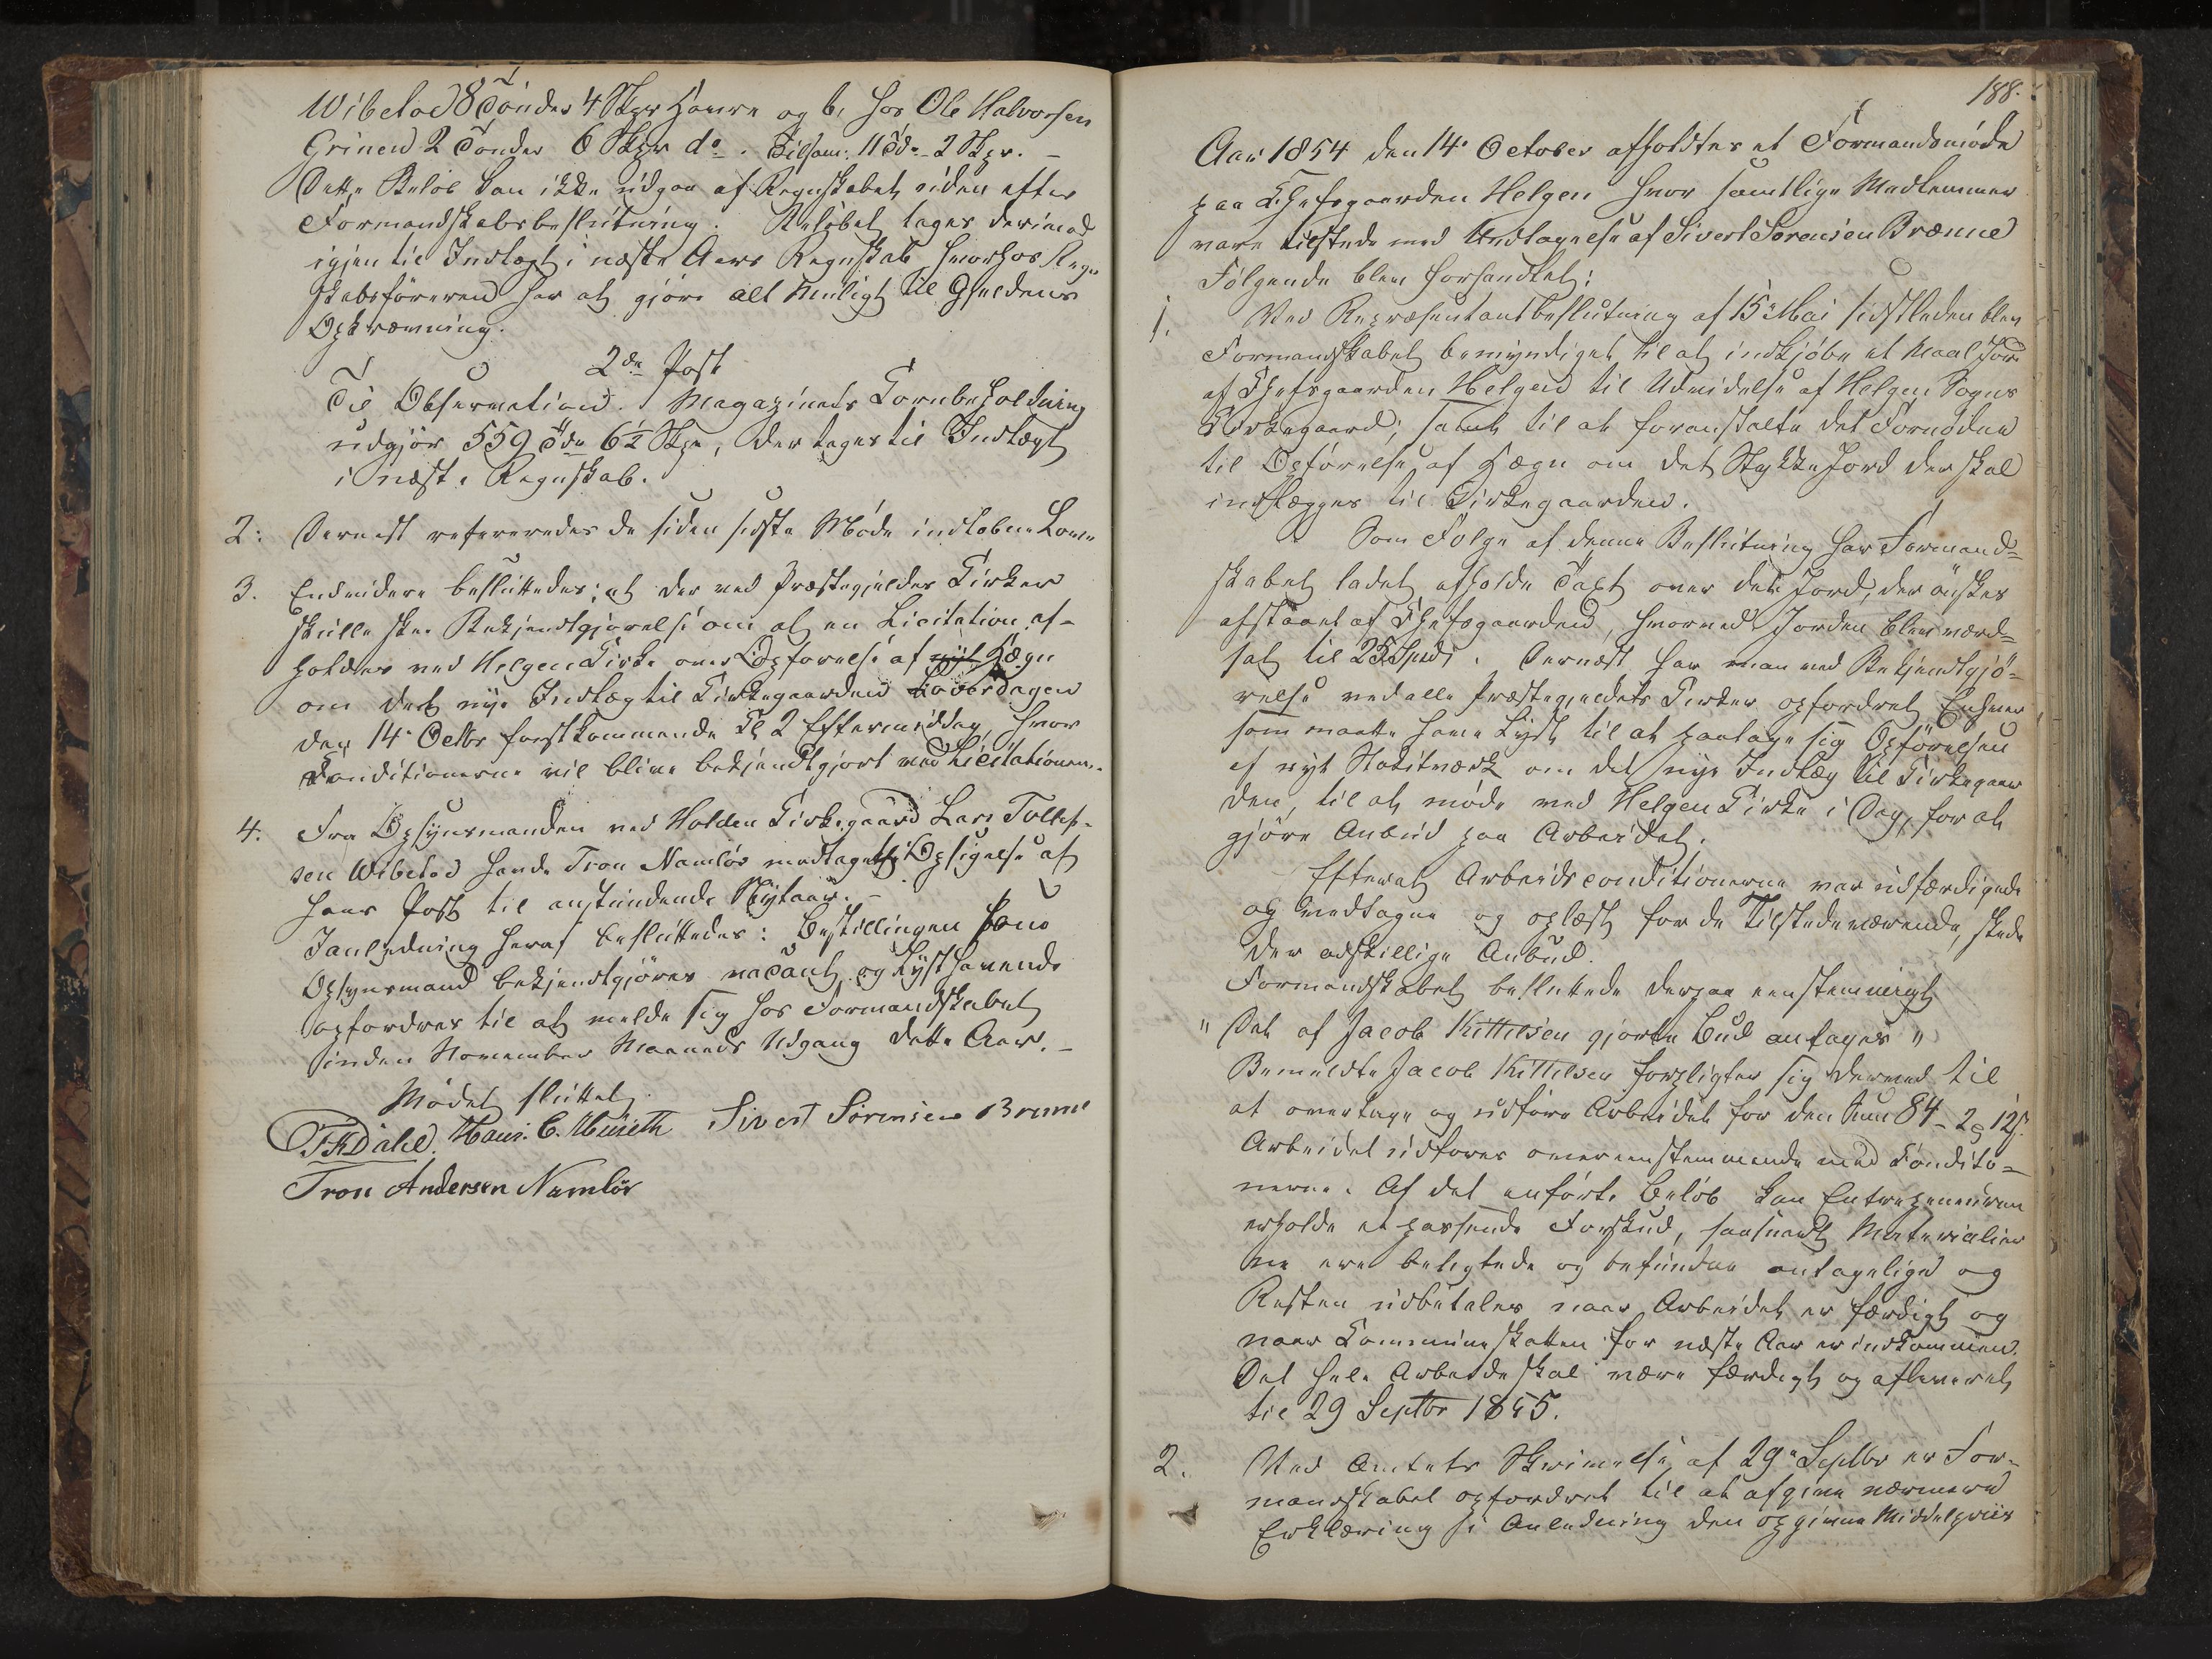 Wibetod 8 Tönder 4 Skpr Havre og b, hos Ole Halvorsen
Grinen 2 Tönder 6 Skpr do. Tilsam: 11 Tdr 2 Skpr. –
Dette Beløb kan ikke udgaa af Regnskabet uden efter
Formandskabsbeslutning. Beløbet tages derimod
igjen til Indtægt i næste Aars Regnskab hvorhos Regn
skabsföreren har at gjöre alt muligt til Gjeldens
Opkrævning.
2den Post
Til Observation. Magazinets Kornbeholdning
udgjör 559 Tdr 6½ Skpr, der tages til Indtægt
i næste Regnskab.
2: Dernæst refereredes de siden sidste Möde indløbne Love
3. Endvidere besluttedes: at der ved Præstegjeldets Kirker
skulle skee Bekjendtgjörelse om at en Licitation af-
holdes ved Helgen Kirke over Opförelse af nyt Hegn
om det nye Indlæg til Kirkegaarden Löverdagen
den 14de Octbr førstkommende Kl 2 Eftermiddag hvor
Konditionerne vil blive bekjendtgjort ved Licitationen.
4. Fra Opsynsmanden ved Holden Kirkegaard Lars Tollef-
sen Wibetod havde Tron Namlös modtaget Opsigelse af
hans Post til anstundende Nytaar. –
I anledning heraf besluttedes: Bestillingen som
Opsynsmand bekjendtgjöres vacant og Lysthavende
opfordres til at melde sig hos Formandskabet
inden November Maaneds Udgang dette Aar. –
Mödet sluttet.
Hans. C. Sivert Sörensen Brenne
Tron Andersen Namlös
188.
Aar 1854 den 14de October afholdtes et Formandsmöde
paa Chefsgaarden Helgen hvor samtlige Medlemmer
vare tilstede med Undtagelse af Sivert Sörensen Brænne
Fölgende blev forhandlet:
1. Ved Repræsentantbeslutning af 15de Mai sidstleden blev
Formandskabet bemyndiget til at indkjöbe et Maal Jord
af Chefsgaarden Helgen til Udvidelse af Helgen Sogns
Kirkegaard; samt til at foranstalte det Fornødne
til Opförelse af Hegn om det Stykke Jord der skal
indlægges til Kirkegaarden.
Som Fölge af denne Beslutning har Formand-
skabet ladet afholde Taxt over det Jord, der önskes
afstaaet af Chefsgaarden, hvorved Jorden blev værd-
sat til 25 Spd. Dernæst har man ved Bekjendtgjö-
relse ved alle Præstegjeldets Kirker opfordret Enhver
som maatte have Lyst til at paatage sig Opförelsen
af nyt Stakitværk om det nye Indlæg til Kirkegaar
den, til at møde ved Helgen Kirke i Dag, for at
gjöre Anbud paa Arbeidet.
Efterat Arbeidsconditionerne var udfærdigede
og vedtagne og oplæst for de Tilstedeværende, skede
der adskillige Anbud.
Formandskabet besluttede derpaa eenstemmigt
"Det af Jacob Kittilsen gjorte Bud antages"
Bemeldte Jacob Kittilsen forpligter sig dermed til
at overtage og udføre Arbeidet for den Sum 84 – 2 – 12 s.
Arbeidet udføres overeensstemmende med Kondito-
nerne. Af det anförte Belöb kan Entrepeneuren
erholde et passende Forskud, saasnart Materialier
ne ere besigtede og befundne antagelige og
Resten udbetales naar Arbeidet er færdigt og
naar Kommuneskatten for næste Aar er indkommen.
Det hele Arbeide skal være færdigt og afleveret
til 29 Septbr 1855.
2. Ved Amtets Skrivelse af 29de Septbr er For-
mandskabet opfordret til at afgive nærmere
Erklæring i Anledning den opgivne Middelpriis